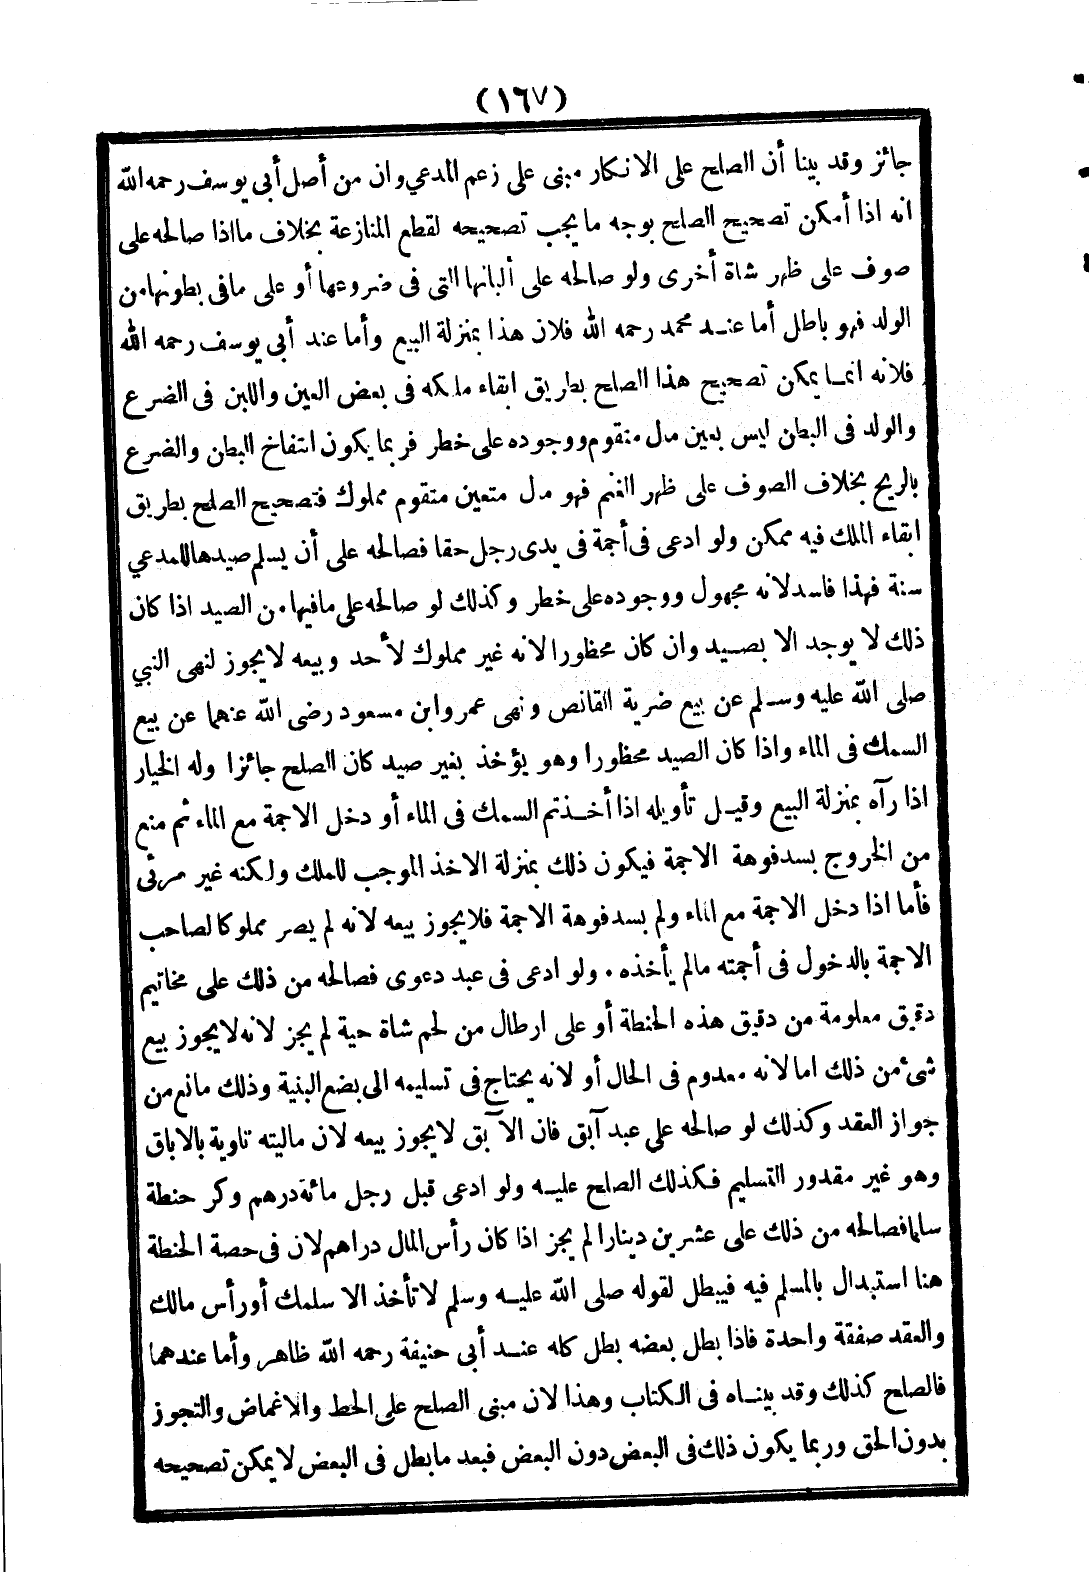 (١٦٧)
جائز وقد بينا أن الصلح على الانكار مبنى على زعم المدعي وان من أصل أبى يوسف رحمه الله
انه اذا أمكن تصحيح الصلح بوجه ما يجب تصحيحه لقطع المنازعة بخلاف ما اذا صالحه على
صوف على ظهر شاة أخرى ولو صالحه على ألبانها التى فى ضروعها أو على ما فى بطونها من
الولد فهو باطل أما عنـد محمد رحمه الله فلان هذا بمنزلة البيع وأما عند أبى يوسف رحمه الله
فلانه انمـا يمكن تصحيح هذا الصلح بطريق ابقاء ملكه فى بعض العين واللبن فى الضرع
والولد فى البطن ليس بعين مال متقوم ووجوده على خطر فربما يكون انتفاخ البطن والضرع
بالريح بخلاف الصوف على ظهر الغنم فهو مال متعين متقوم مملوك فتصحيح الصلح بطريق
ابقاء الملك فيه ممكن ولو ادعى فى أجمة فى يدى رجل حقا فصالحه على أن يسلم صيدها للمدعي
سنة فهذا فاسد لانه مجهول ووجوده على خطر وكذلك لو صالحه على ما فيها من الصيد اذا كان
ذلك لا يوجد الا بصـيد وان كان محظورا لانه غير مملوك لأحد وبيعه لا يجوز لنهى النبي
صلى الله عليه وسـلم عن بيع ضربة القانص ونهى عمر وابن مسعود رضى الله عنهما عن بيع
السمك فى الماء واذا كان الصيد محظورا وهو يؤخذ بغير صيد كان الصلح جائزا وله الخيار
اذا رآه بمنزلة البيع وقيـل تأويله اذا أخـذتم السمك فى الماء أو دخل الاجمة مع الماء ثم منع
من الخروج بسد فوهة الاجمة فيكون ذلك بمنزلة الاخذ الموجب للملك ولكنه غير مرئى
فأما اذا دخل الاجمة مع الماء ولم يسد فوهة الاجمة فلا يجوز بيعه لانه لم يصر مملوكا لصاحب
الاجمة بالدخول فى أجمته ما لم يأخذه ٠ ولو ادعى فى عبد دعوى فصالحه من ذلك على مخاتيم
دقيق معلومة من دقيق هذه الحنطة أو على ارطال من لحم شاة حية لم يجز لانه لا يجوز بيع
شئ من ذلك اما لانه معدوم فى الحال أو لانه يحتاج فى تسليمه الى بضع البنية وذلك مانع من
جواز العقد وكذلك لو صالحه على عبد آبق فان الآبق لا يجوز بيعه لان ماليته تاوية بالاباق
وهو غير مقدور التسليم فكذلك الصلح عليـه ولو ادعى قبل رجل مائة درهم وكر حنطة
سلما فصالحه من ذلك على عشرين دينارا لم يجز اذا كان رأس المال دراهم لان فى حصة الحنطة
هنا استبدال بالمسلم فيه فيبطل لقوله صلى الله عليـه وسلم لا تأخذ الا سلمك أو رأس مالك
والعقد صفقة واحدة فاذا بطل بعضه بطل كله عنـد أبى حنيفة رحمه الله ظاهر وأما عندهما
فالصلح كذلك وقد بينـاه فى الكتاب وهذا لان مبنى الصلح على الحط والاغماض والتجوز
بدون الحق وربما يكون ذلك فى البعض دون البعض فبعد ما بطل فى البعض لا يمكن تصحيحه